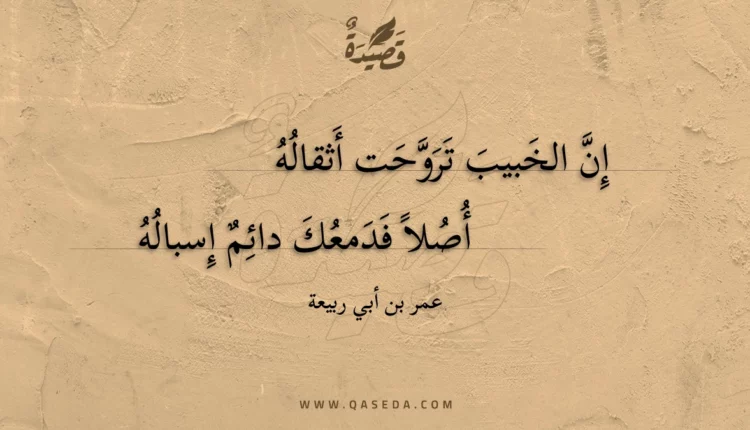 قَصِيدَةٌ
إِنَّ الخَبيبَ تَرَوَّحَت أَثقالُهُ
أُصُلاً فَدَمعُكَ دائِمٌ إِسبالُهُ
عمر بن أبي ربيعة
WWW.QASEDA.COM